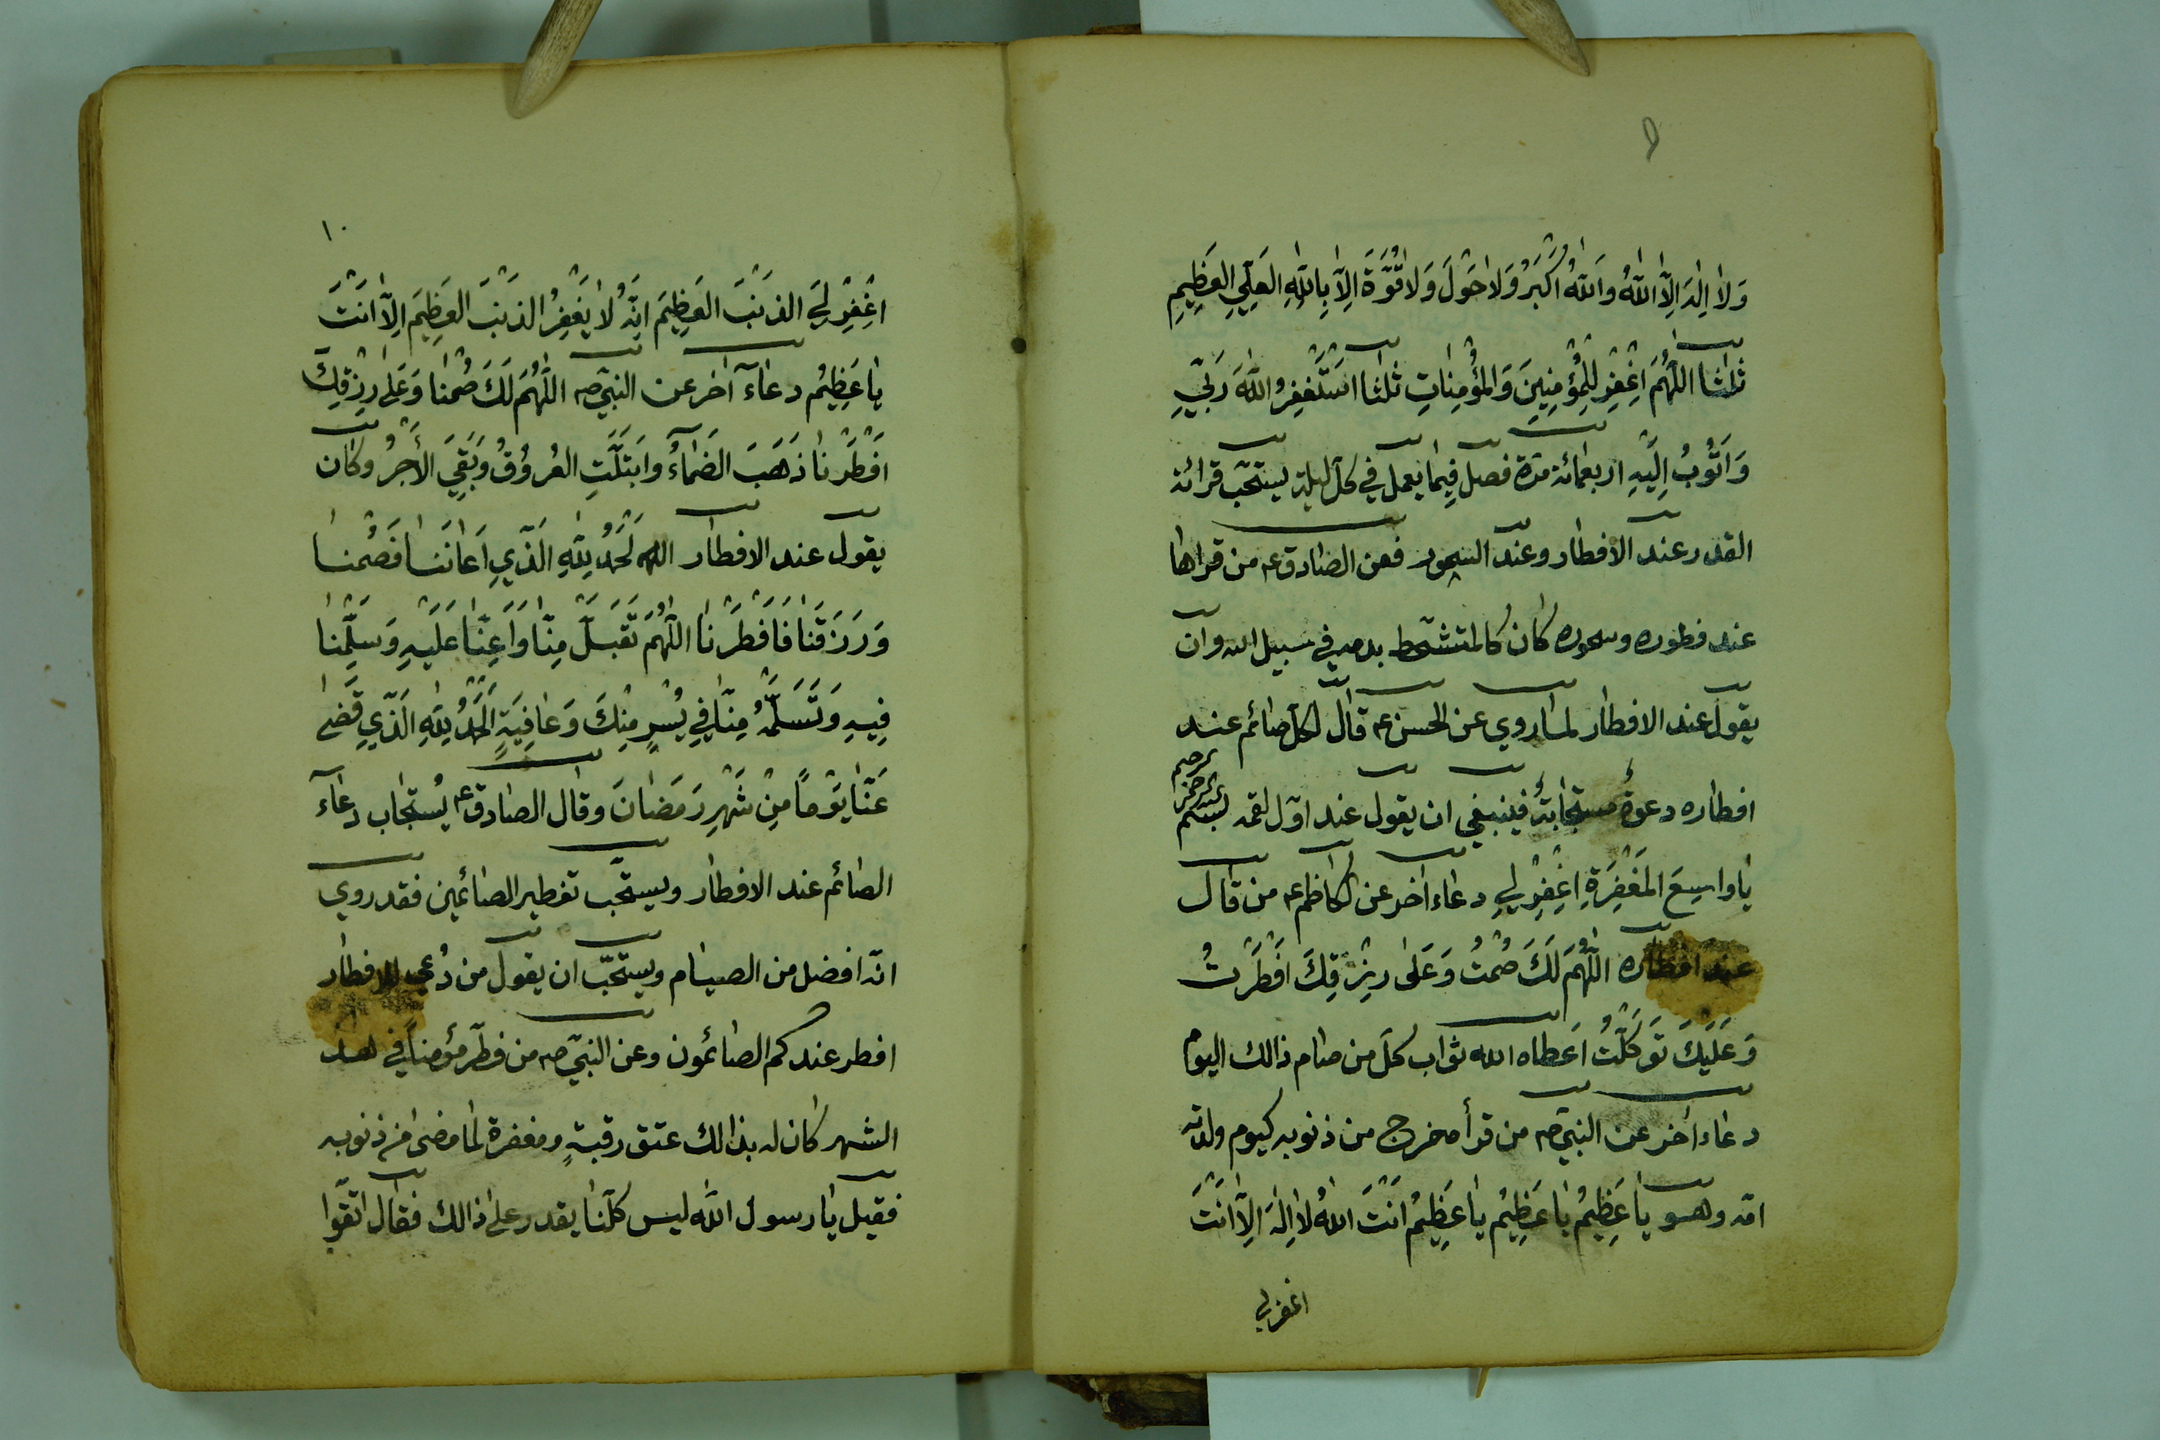 وَلاٰ اِلٰهَ اِلاَّ اللّٰهُ وَاللّٰهُ اَكْبَرُ وَلاٰ حَوْلَ وَلاٰ قُوَّةَ اِلاّٰ بِاللّٰهِ العَلِيِّ العَظِيْمِ
ثلثا اَللّٰهُمَّ اغْفِرْ لِلْمُؤْمِنِينَ وَالْمُؤْمِنٰاتِ ثلثا اَسْتَغْفِرُ اللّٰهَ رَبّيِ
وَاَتُوْبُ اِلَيْهِ اربعمائة مرّة فصل فيما يعمل في كلّ ليلة يستحّب قرائة
القدر عند الافطار وعند السحور فعن الصّادق ع من قراها
عند فطوره وسحوره كان كالمتشحّط بدمه في سبيل الله وان
يقول عند الافطار لما روي عن الحسن ع قال لكلّ صائم عند
افطاره دعوة مستجابة فينبغي ان يقول عند اوّل لقمة بسم
يٰا وٰاسِعَ المَغْفِرَةِ اِغْفِرْ لِي دعاء اخر عن الكاظم ع من قال
عند افطاره اَللّٰهُمَّ لَكَ صُمْتُ وَعَلىٰ رِزْقِكَ اَفْطَرْتُ
وَعَلَيْكَ تَوَكَّلْتُ اَعطاه الله ثواب كلّ من صام ذالك اليوم
دعاء اخر عن النبيّ ص من قرأه خرج من ذنوبه كيوم ولدته
امّه وهو يٰا عَظِيْمُ يٰا عَظِيْمُ يٰا عَظِيْمُ اَنْتَ اللّٰهُ لاٰ اِلٰهَ اِلاّٰ اَنْتَ
اغفر لي
١٠
اغْفِرْ لِيَ الذَنْبَ العَظِيْمَ اِنَّهُ لاٰ يَغْفِرُ الذَنْبَ العَظِيْمَ اِلاّٰ اَنْتَ
يٰا عَظِيْمُ دعٰاء آخر عن النبيّ ص اَللّٰهُمَّ لَكَ صُمْنٰا وَعَلىٰ رِزْقِكَ
اَفْطَرْنٰا ذَهَبَ الضَمٰاءُ وابَتَلَّتِ العُروُقُ وَبَقِيَ الأَجْرُ وكان
يقول عند الافطار اَلْحَمْدُ لِلّٰهِ الَذّيِ اَعٰانَنٰا فَصُمْنٰا
وَرَزَقَنٰا فَاَفْطَرْنٰا اَللّٰهُمَّ تَقَبَلَّ مِنّٰا وَاَعِنّٰا عَلَيْهِ وَسَلِّمْنٰا
فِيِهِ وَتَسَلَّمْهُ مِنّٰا فِي يُسْرٍ مِنْكَ وَعٰافِيَةٍ اَلْحَمْدُ لِلّٰهِ الَذّيِ قَضىٰ
عَنّٰا يَوْماً مِنْ شَهْرِ رَمَضٰانَ وقال الصادق ع يُستجٰاب دعٰآء
الصٰائم عند الافطار ويستحّب تفطير الصٰائمين فقد روي
انّه افضل من الصيٰام ويستحّب ان يقول من دُعي للافطار
افطر عندكم الصٰائمون وعن النبيّ ص من فطّر مؤمناً في هذ
الشهر كان له بذالك عتق رقبةٍ ومغفرة لما مضىٰ من ذنوبه
فقيل يٰا رسول الله ليس كلّنٰا يقدر علىٰ ذالك فقال اتّقوا